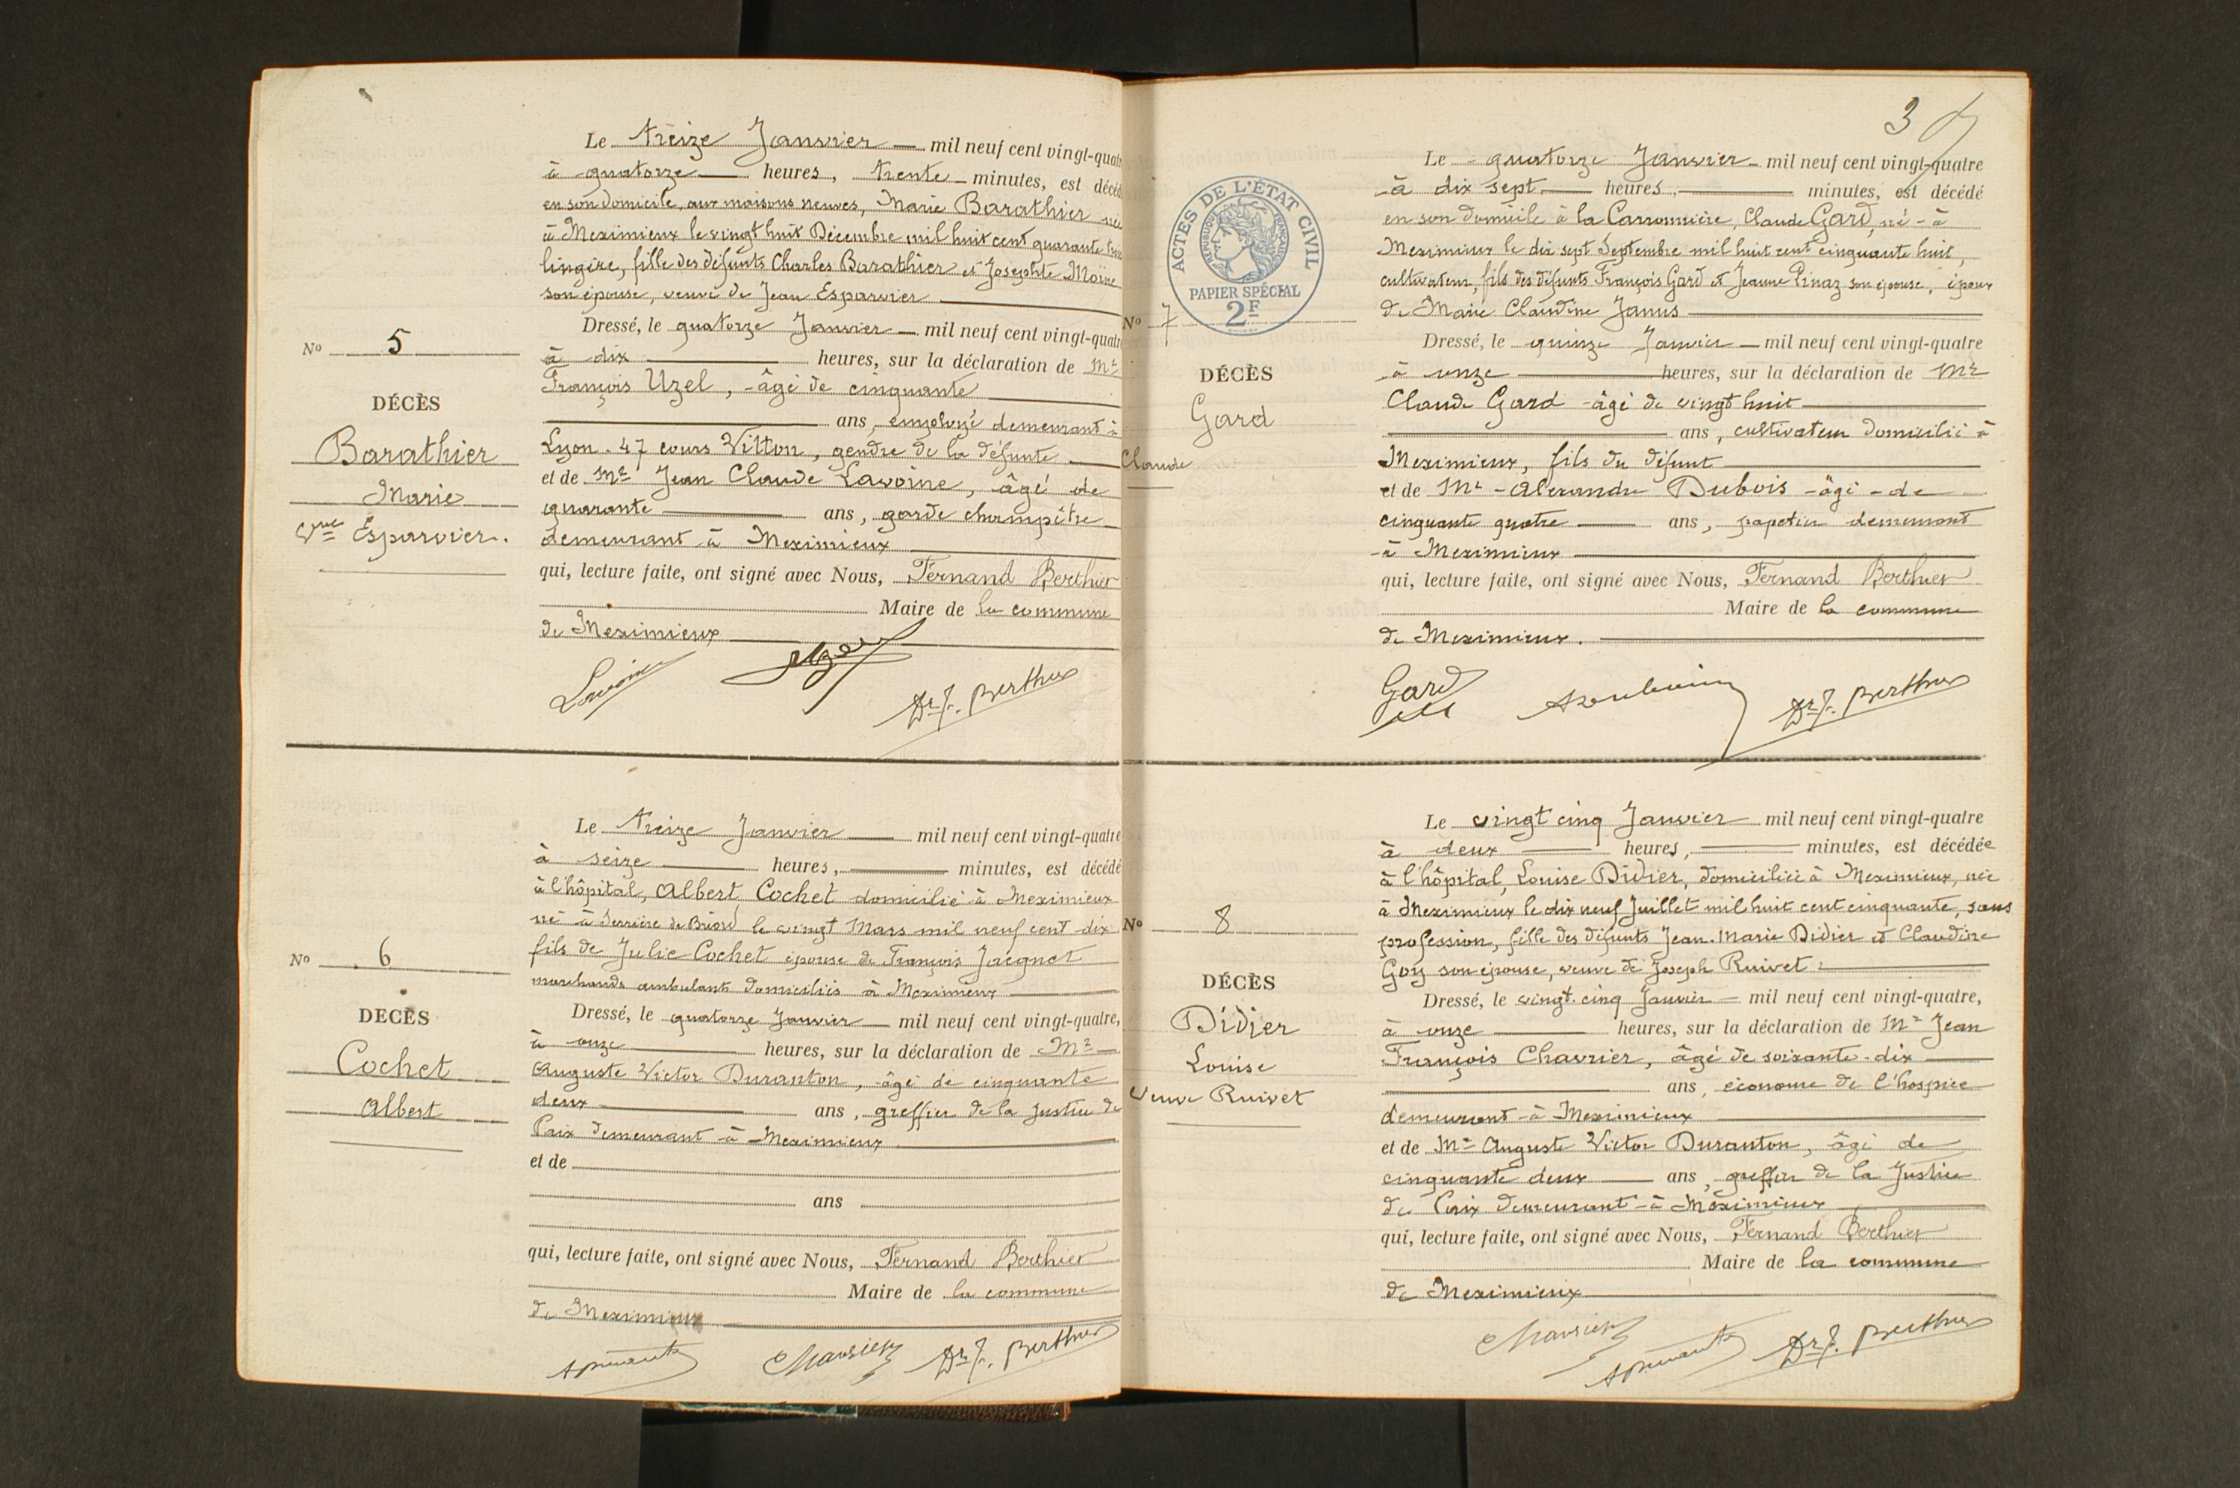 Le treize Janvier — mil neuf cent vingt-quatr
à quatorze — heures, trente — minutes, est décéd
en son domicile, aux maisons neuves, Marie Barathier née
à Meximieux le vingt huit Décembre mil huit cent quarante
lingère, fille des défunts Charles Barathier et Josephte Moine
son épouse, veuve de Jean Esparvier
Dressé, le quatorze Janvier — mil neuf cent vingt-quatr
à dix — heures, sur la déclaration de Mr
François Uzel, âgé de cinquante
ans, employé demeurant à
Lyon. 47 cours Vitton, gendre de la défunte
et de Mr Jean Claude Lavoine, âgé de
quarante — ans, garde champêtre
demeurant à Meximieux
qui, lecture faite, ont signé avec Nous, Fernand Berthier
Maire de la commune
de Meximieux
Lavoine Uzel Dr F. Berthier
No 5
DÉCÈS
Barathier
Marie
Vve Esparvier.
Le treize Janvier — mil neuf cent vingt-quatre
à seize — heures, — minutes, est décédé
à l'hôpital, Albert Cochet domicilié à Meximieux
né à Serrière de Briord le vingt Mars mil neuf cent dix
fils de Julie Cochet épouse de François Jacquet
marchands ambulants domiciliés à Meximieux
Dressé, le quatorze Janvier — mil neuf cent vingt-quatre,
à onze — heures, sur la déclaration de Mr
Auguste Victor Duranton, âgé de cinquante
deux — ans, greffier de la Justice de
Paix demeurant à Meximieux
et de
ans
qui, lecture faite, ont signé avec Nous, Fernand Berthier
Maire de la commune
de Meximieux
Chavrier Dr F. Berthier
No 6
DÉCÈS
Cochet
Albert
3
Le quatorze Janvier — mil neuf cent vingt-quatre
à dix sept — heures, — minutes, est décédé
en son domicile à la Carronnière, Claude Gard, né à
Meximieux le dix sept Septembre mil huit cent cinquante huit,
cultivateur, fils des défunts François Gard et Jeanne Pinaz son épouse, époux
de Marie Claudine Janus
Dressé, le quinze Janvier — mil neuf cent vingt-quatre
à onze — heures, sur la déclaration de Mr
Claude Gard âgé de vingt huit
ans, cultivateur domicilié à
Meximieux, fils du défunt
et de Mr Alexandre Dubois âgé de
cinquante quatre — ans, papetier demeurant
à Meximieux
qui, lecture faite, ont signé avec Nous, Fernand Berthier
Maire de la commune
de Meximieux.
Gard Dr F. Berthier
ACTES DE L'ÉTAT CIVIL
RÉPUBLIQUE FRANÇAISE
PAPIER SPÉCIAL
2F
No 7
DÉCÈS
Gard
Claude
Le vingt cinq Janvier — mil neuf cent vingt-quatre
à deux — heures, — minutes, est décédée
à l'hôpital, Louise Didier, domiciliée à Meximieux, née
à Meximieux le dix neuf Juillet mil huit cent cinquante, sans
profession, fille des défunts Jean-Marie Didier et Claudine
Goy son épouse, veuve de Joseph Ruivet
Dressé, le vingt-cinq Janvier — mil neuf cent vingt-quatre,
à onze — heures, sur la déclaration de Mr Jean
François Chavrier, âgé de soixante-dix
ans, économe de l'hospice
demeurant à Meximieux
et de Mr Auguste Victor Duranton, âgé de
cinquante deux — ans, greffier de la Justice
de Paix demeurant à Meximieux
qui, lecture faite, ont signé avec Nous, Fernand Berthier
Maire de la commune
de Meximieux
Chavrier Dr F. Berthier
No 8
DÉCÈS
Didier
Louise
Veuve Ruivet